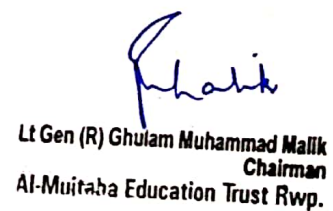 Lt Gen (R) Ghulam Muhammad Malik
Chairman
Al-Mujtaba Education Trust Rwp.